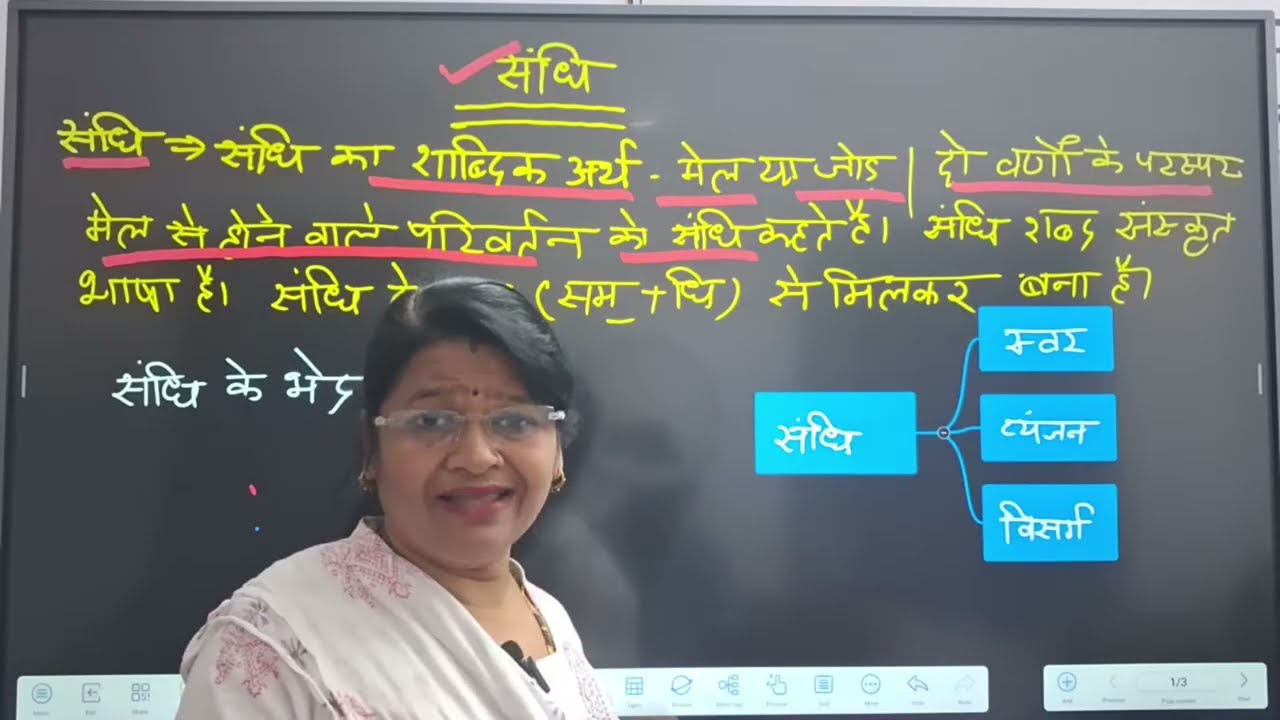 संधि
संधि ⇒ संधि का शाब्दिक अर्थ - मेल या जोड़ | दो वर्णों के परस्पर
मेल से होने वाले परिवर्तन को संधि कहते हैं। संधि शब्द संस्कृत
भाषा है। संधि (सम् +धि) से मिलकर बना है।
संधि के भेद
संधि
स्वर
व्यंजन
विसर्ग
1/3